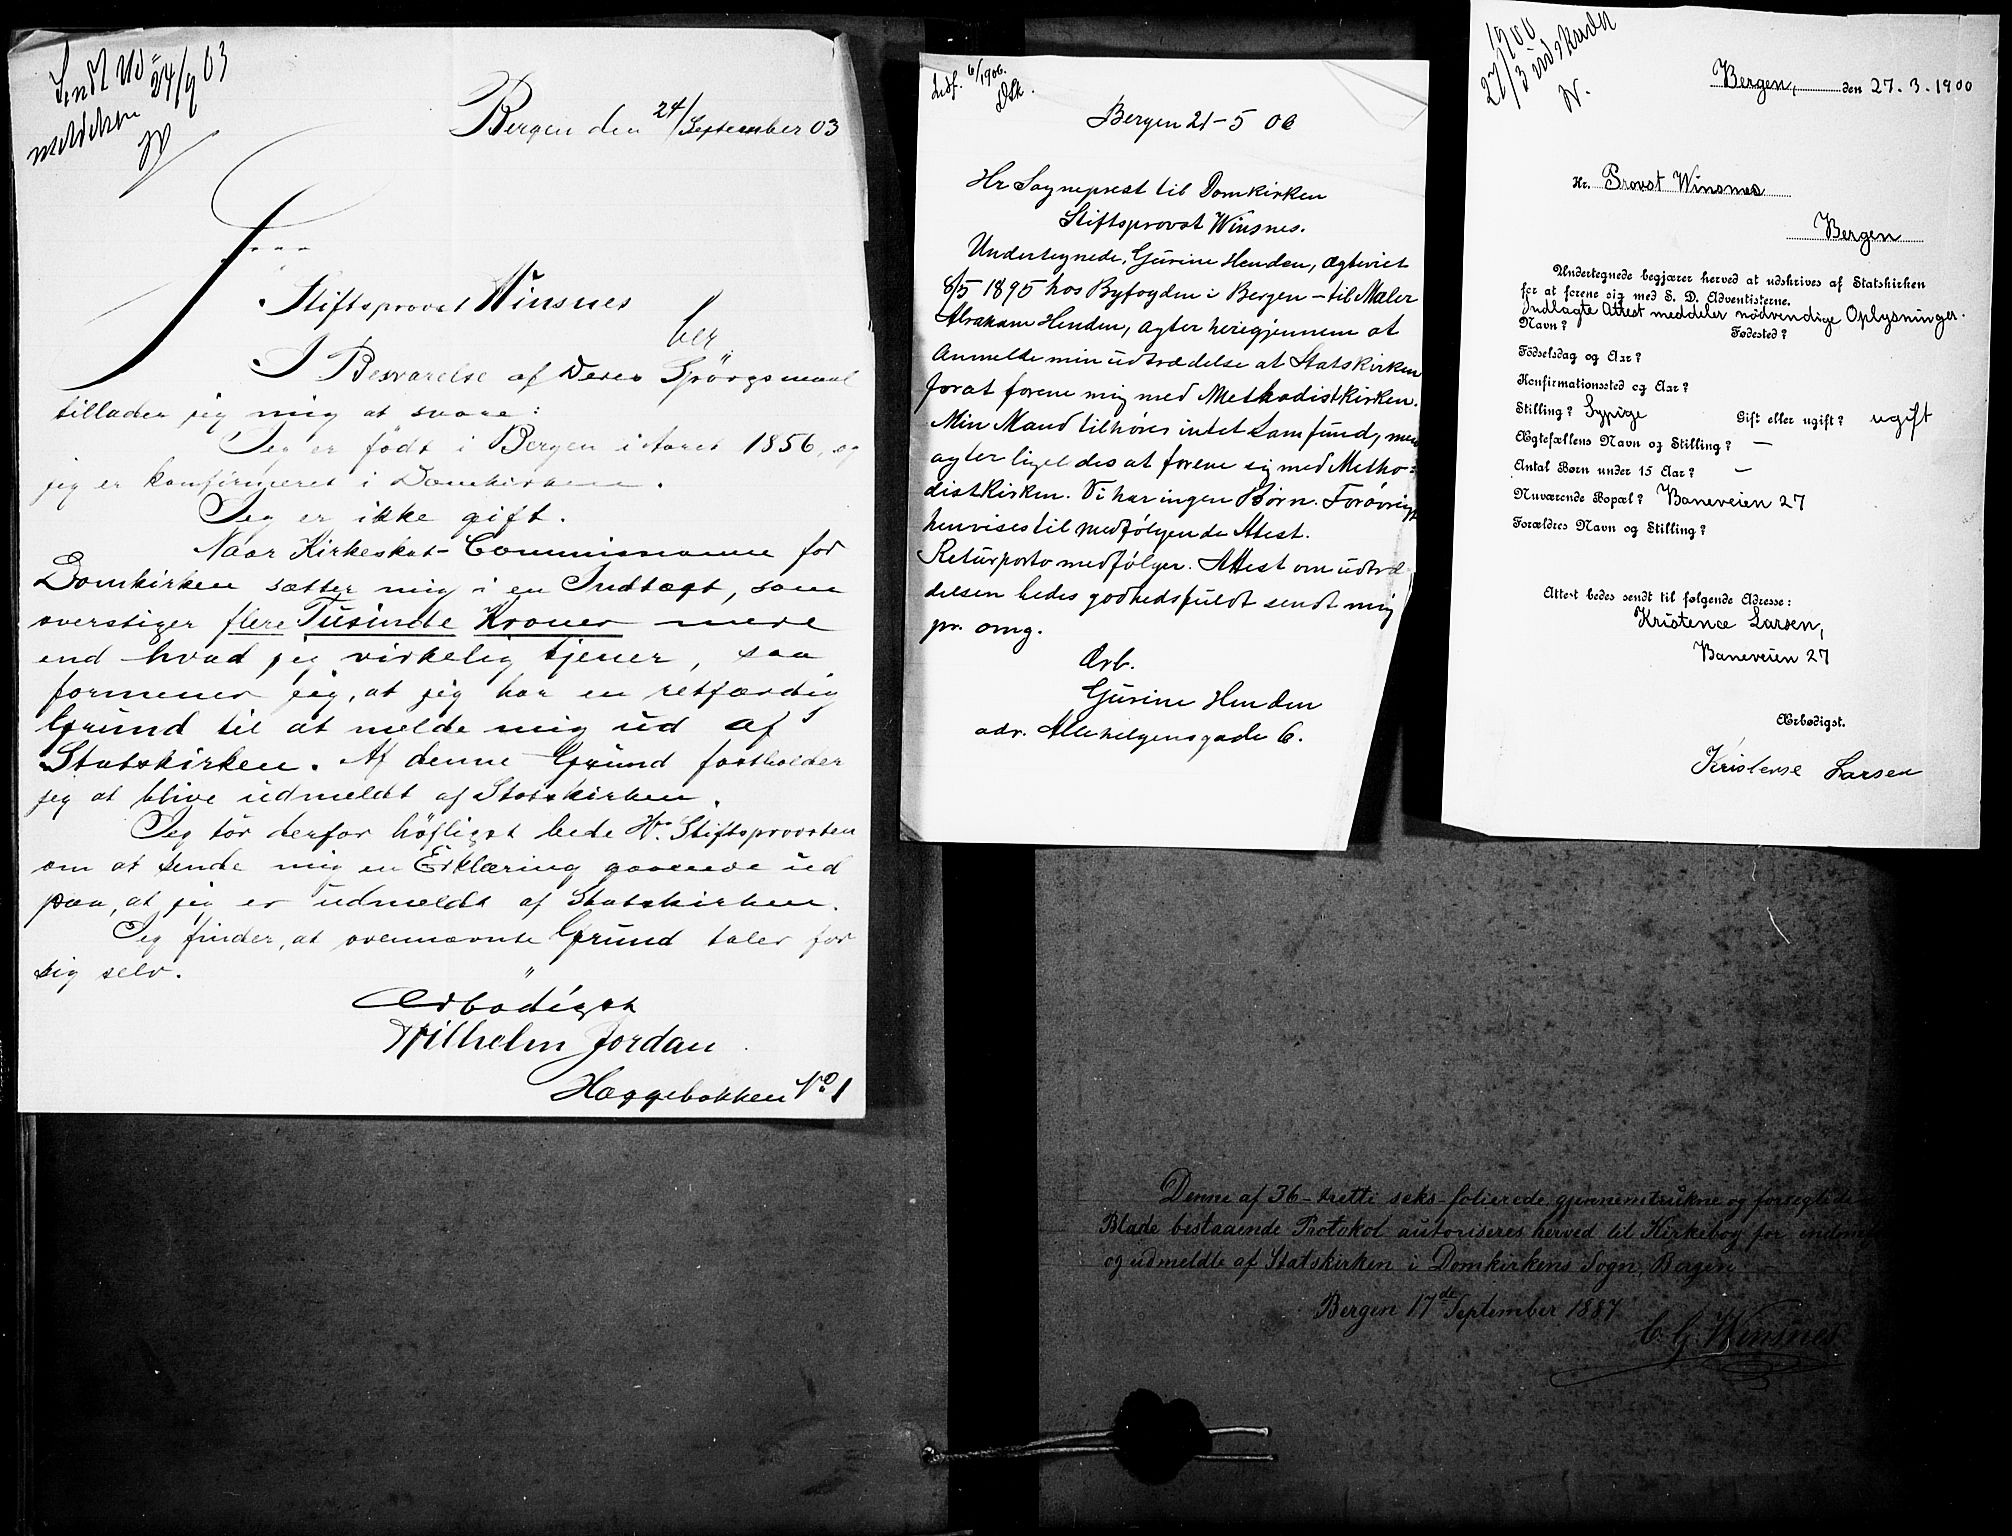 Sendt Ud-
meldelsen 24/9 03
W
Bergen den 24/September 03
Herr
Stiftsprovst Winsnes
her.
I Besvarelse af Deres Spörgsmaal
tillader jeg mig at svare:
Jeg er födt i Bergen i Aaret 1856, og
jeg er konfirmeret i Domkirken.
Jeg er ikke gift.
Naar Kirkeskat-Commissionen for
Domkirken sætter mig i en Indtægt, som
overstiger flere Tusinde Kroner mere
end hvad jeg virkelig tjener, saa
formener jeg, at jeg har en retfærdig
Grund til at melde mig ud af
Statskirken. Af denne Grund fastholder
jeg at blive udmeldt af Statskirken.
Jeg tör derfor höfligst bede Hr. Stiftsprovsten
om at sende mig en Erklæring gaaende ud
paa, at jeg er udmeldt af Statskirken.
Jeg finder, at ovennævnte Grund taler for
sig selv.
Ærbödigst
Wilhelm Jordan
Hæggebakken No 1
6/1906.
Bergen 21-5 06
Hr Sogneprest til Domkirken
Stiftsprovst Winsnes.
Undertegnede, Gurine Henden, ægteviet
8/5 1895 hos Byfogden i Bergen - til Maler
Abraham Henden, agter herigjennem at
anmelde min udtrædelse at Statskirken
forat forene mig med Methodistkirken.
Min Mand tilhører intet Samfund, men
agter ligeledes at forene sig med Metho-
distkirken. Vi har ingen Børn. Forøvrigt
henvises til medfølgende Attest.
Returporto medfølger. Attest om udtræ-
delsen bedes godhedsfuldt sendt mig
pr. omg.
Ærb.
Gurine Henden
adr. Allehelgensgade 6.
1900
27/3 udskrevet
W.
Bergen, den 27.3.1900
Hr. Provst Winsnes
Bergen
Undertegnede begjærer herved at udskrives af Statskirken
for at forene sig med S. D. Adventisterne.
Indlagte Attest meddeler nödvendige Oplysninger.
Navn? Fødested?
Fødselsdag og Aar?
Konfirmationssted og Aar?
Stilling? Sypige Gift eller ugift? ugift
Ægtefællens Navn og Stilling? —
Antal Børn under 15 Aar? —
Nuværende Bopæl? Baneveien 27
Forældres Navn og Stilling?
Attest bedes sendt til følgende Adresse:
Kristence Larsen,
Baneveien 27
Ærbødigst.
Kristense Larsen
Denne af 36 - tretti seks - folierede gjennemtrukne og forseglede
Blade bestaaende Protokol autoriseres herved til Kirkebog for indm
og udmeldte af Statskirken i Domkirkens Sogn, Bergen
Bergen 17de September 1887
C. G. Winsnes